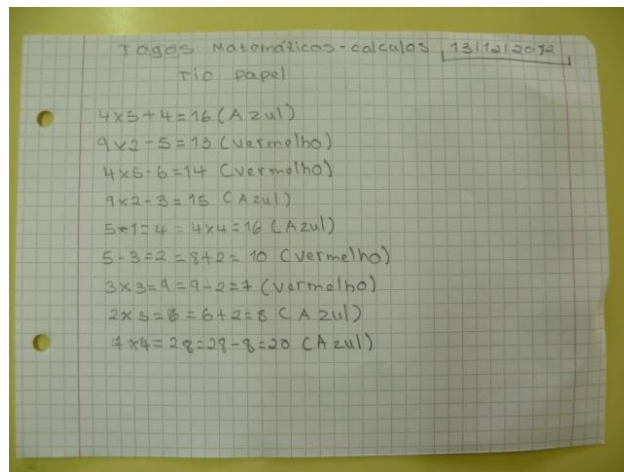 Jogos Matemáticos-calculos 13/12/2012
Tio Papel
4x5+4=16 (Azul)
9x2-5=13 (vermelho)
4x5-6=14 (vermelho)
9x2-3=15 (Azul)
5-1=4=4x4=16 (Azul)
5-3=2=8+2=10 (vermelho)
3x3=9=9-2=7 (vermelho)
2x3=6=6+2=8 (Azul)
7x4=28=28-8=20 (Azul)